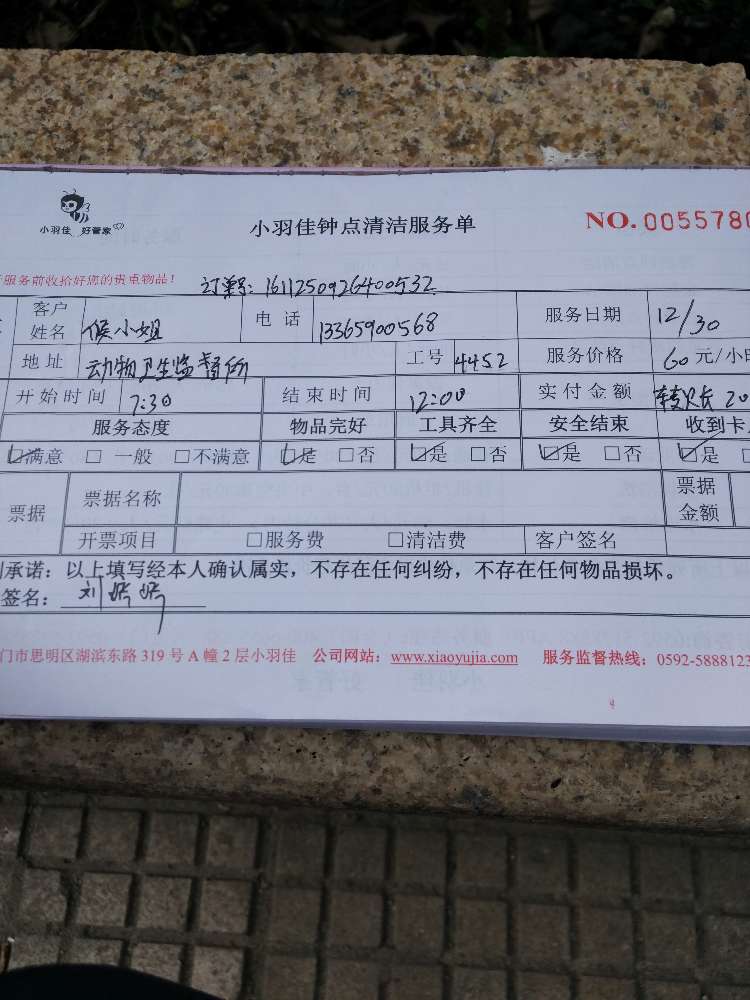 小羽佳 好管家
小羽佳钟点清洁服务单 NO.0055780
服务前收拾好您的贵重物品!
订单号: 1611250926400532
客户姓名 侯小姐 电话 13365900568 服务日期 12/30
地址 动物卫生监督所 工号 4452 服务价格 60 元/小时
开始时间 7:30 结束时间 12:00 实付金额 20
服务态度 物品完好 工具齐全 安全结束 收到卡
☑满意 □ 一般 □不满意 ☑是 □否 ☑是 □否 ☑是 □否 ☑是 □
票据 票据名称 票据金额
开票项目 □服务费 □清洁费 客户签名
承诺:以上填写经本人确认属实,不存在任何纠纷,不存在任何物品损坏。
签名:刘嫦嫦
门市思明区湖滨东路 319 号 A 幢 2 层小羽佳 公司网站:www.xiaoyujia.com 服务监督热线:0592-5888123